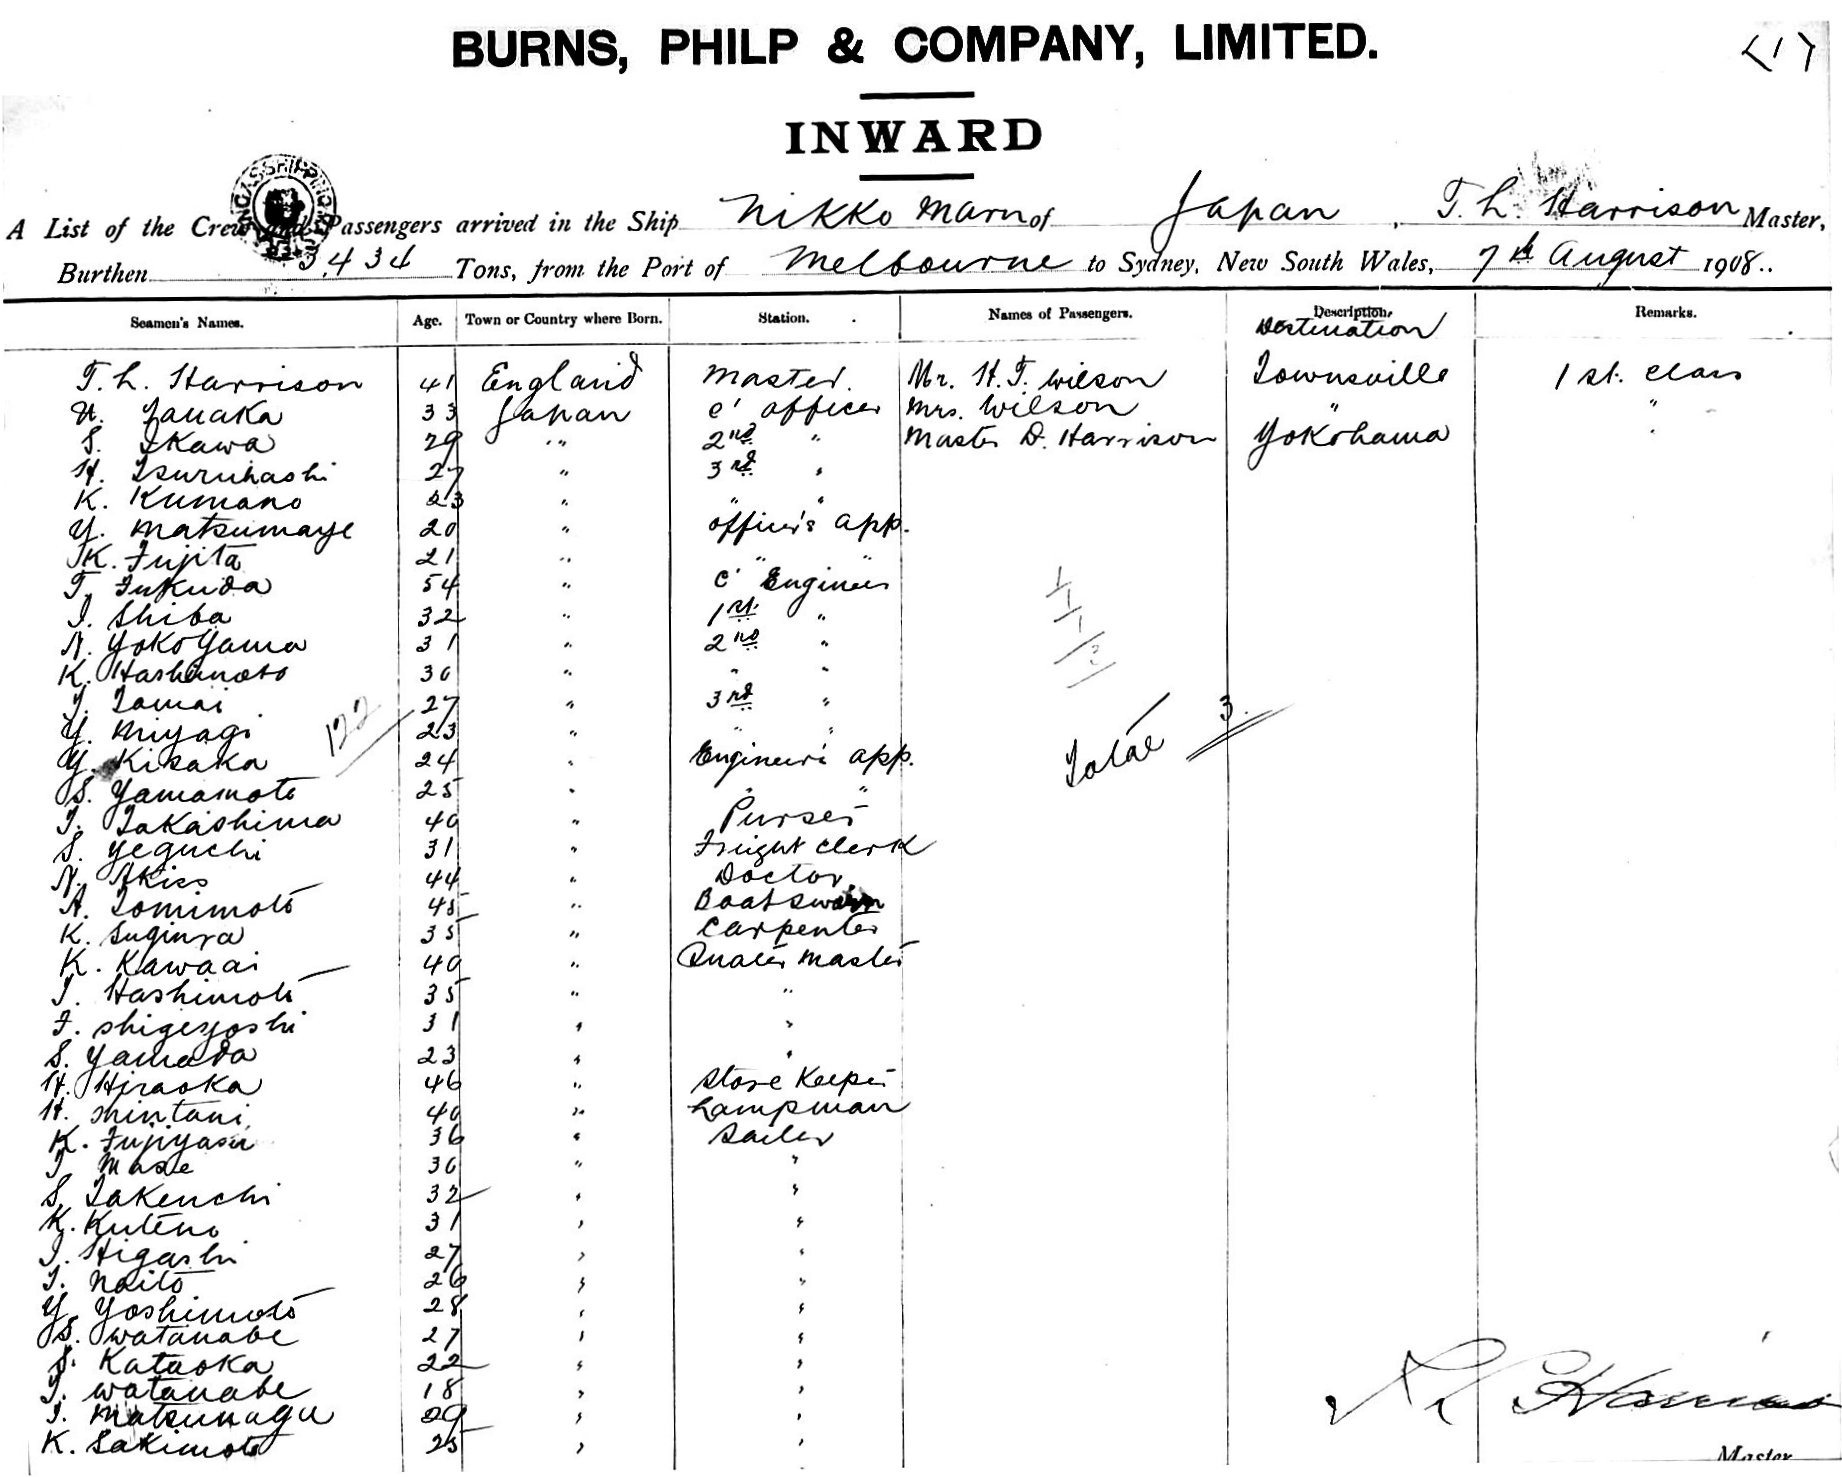 <1>
BURNS, PHILP & COMPANY, LIMITED.
INWARD
A List of the Crew and Passengers arrived in the Ship Nikko Maru of Japan, T. L. Harrison Master,
Burthen 3,434 Tons, from the Port of Melbourne to Sydney, New South Wales, 7th August 1908..
Seamen's Names. Age. Town or Country where Born. Station. Names of Passengers. Description. Remarks.
Destination
T. L. Harrison 41 England Master. Mr. H. T. Wilson Townsville 1 st. Class
U. Tanaka 33 Japan C' Officer Mrs. Wilson " "
S. Ikawa 29 " " 2nd " Master D. Harrison Yokohama "
H. Tsuruhashi 27 " 3rd "
K. Kumano 23 " " "
Y. Matsumaye 20 " Officer's app.
K. Fujita 21 " " "
T. Fukuda 54 " C' Engineer
I. Shiba 32 " 1st. "
N. Yokoyama 31 " 2nd "
K. Hashimoto 30 " " "
T. Tamai 27 " 3rd "
Y. Miyagi 23 " " "
122
Total 3.
Y. Kisaka 24 " Engineer's app.
S. Yamamoto 25 " " "
T. Takashima 40 " Purser
S. Yeguchi 31 " Freight Clerk
N. 44 " Doctor
A. Tomimoto 45 " Boatswain
K. 35 " Carpenter
K. Kawaai 40 " Quater Master
T. Hashimoto 35 " "
F. Shigeyoshi 31 " "
S. Yamada 23 " "
H. Hiraoka 46 " Store Keeper
H. Shintani 40 " Lampman
K. Fujiyasu 36 " Sailor
T. Mase 30 " "
S. Takeuchi 32 " "
K. Kuteno 31 " "
I. Higashi 27 " "
T. Naito 26 " "
Y. Yoshimoto 28 " "
S. Watanabe 27 " "
S. Kataoka 22 " "
T. Watanabe 18 " "
I. Matsunaga 29 " "
K. Sakimoto 25 " "
Master